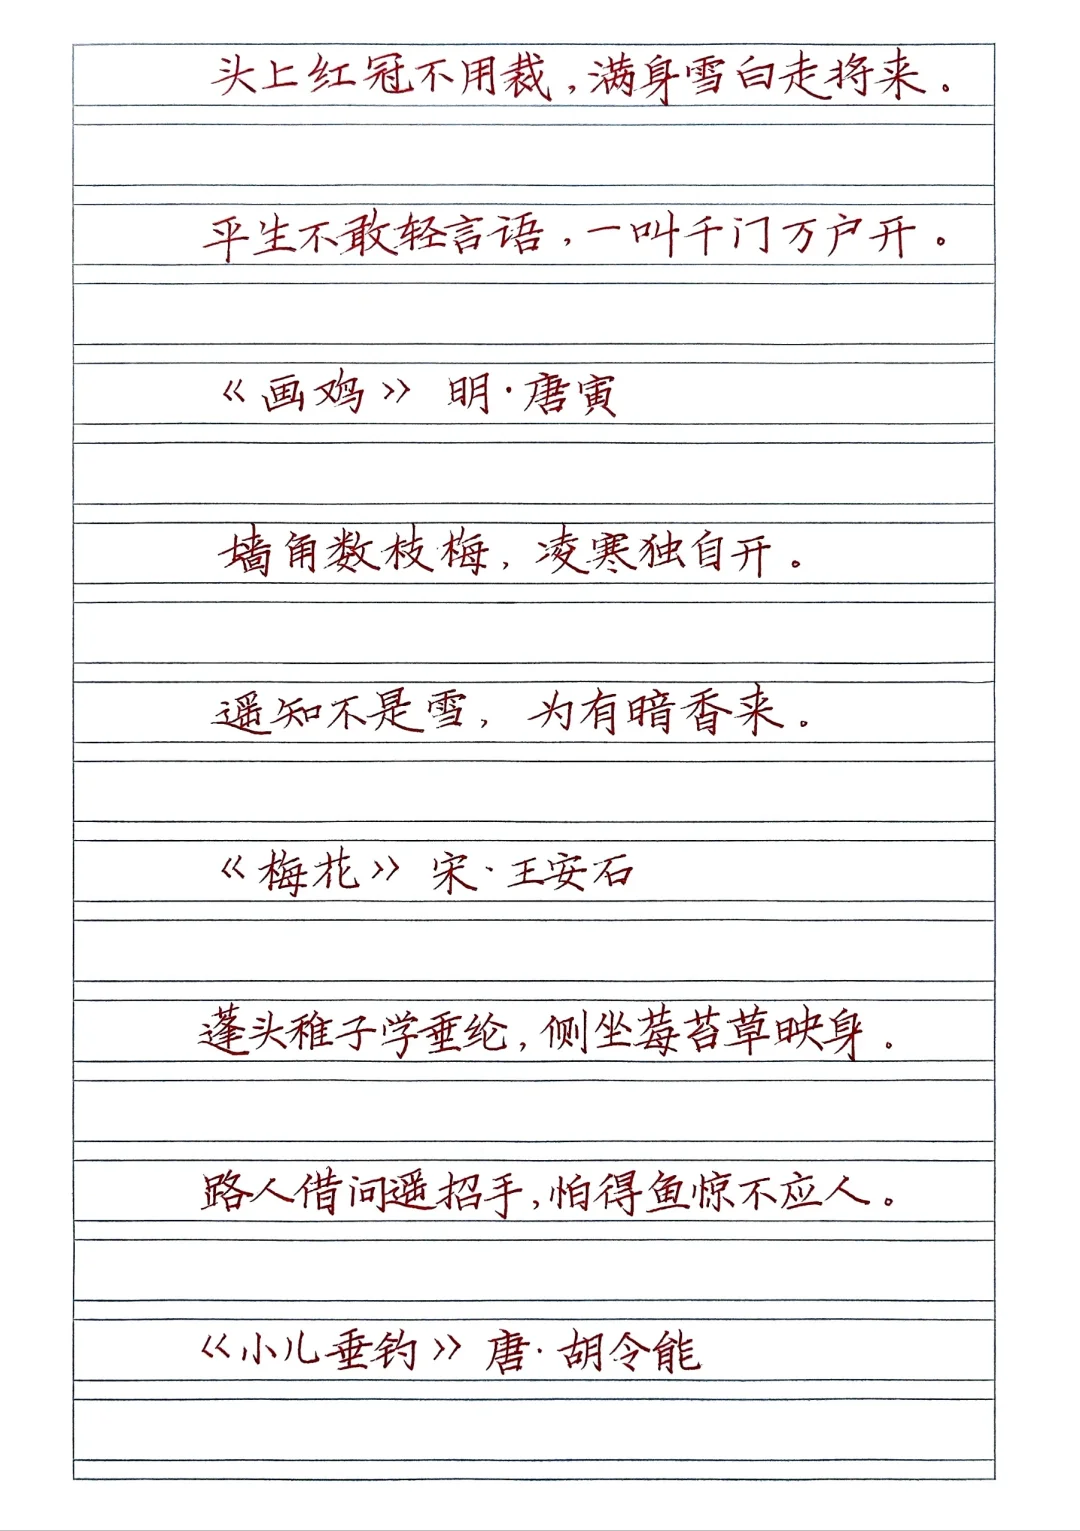 头上红冠不用裁，满身雪白走将来。
平生不敢轻言语，一叫千门万户开。
《画鸡》 明·唐寅
墙角数枝梅，凌寒独自开。
遥知不是雪，为有暗香来。
《梅花》宋·王安石
蓬头稚子学垂纶，侧坐莓苔草映身。
路人借问遥招手，怕得鱼惊不应人。
《小儿垂钓》唐·胡令能